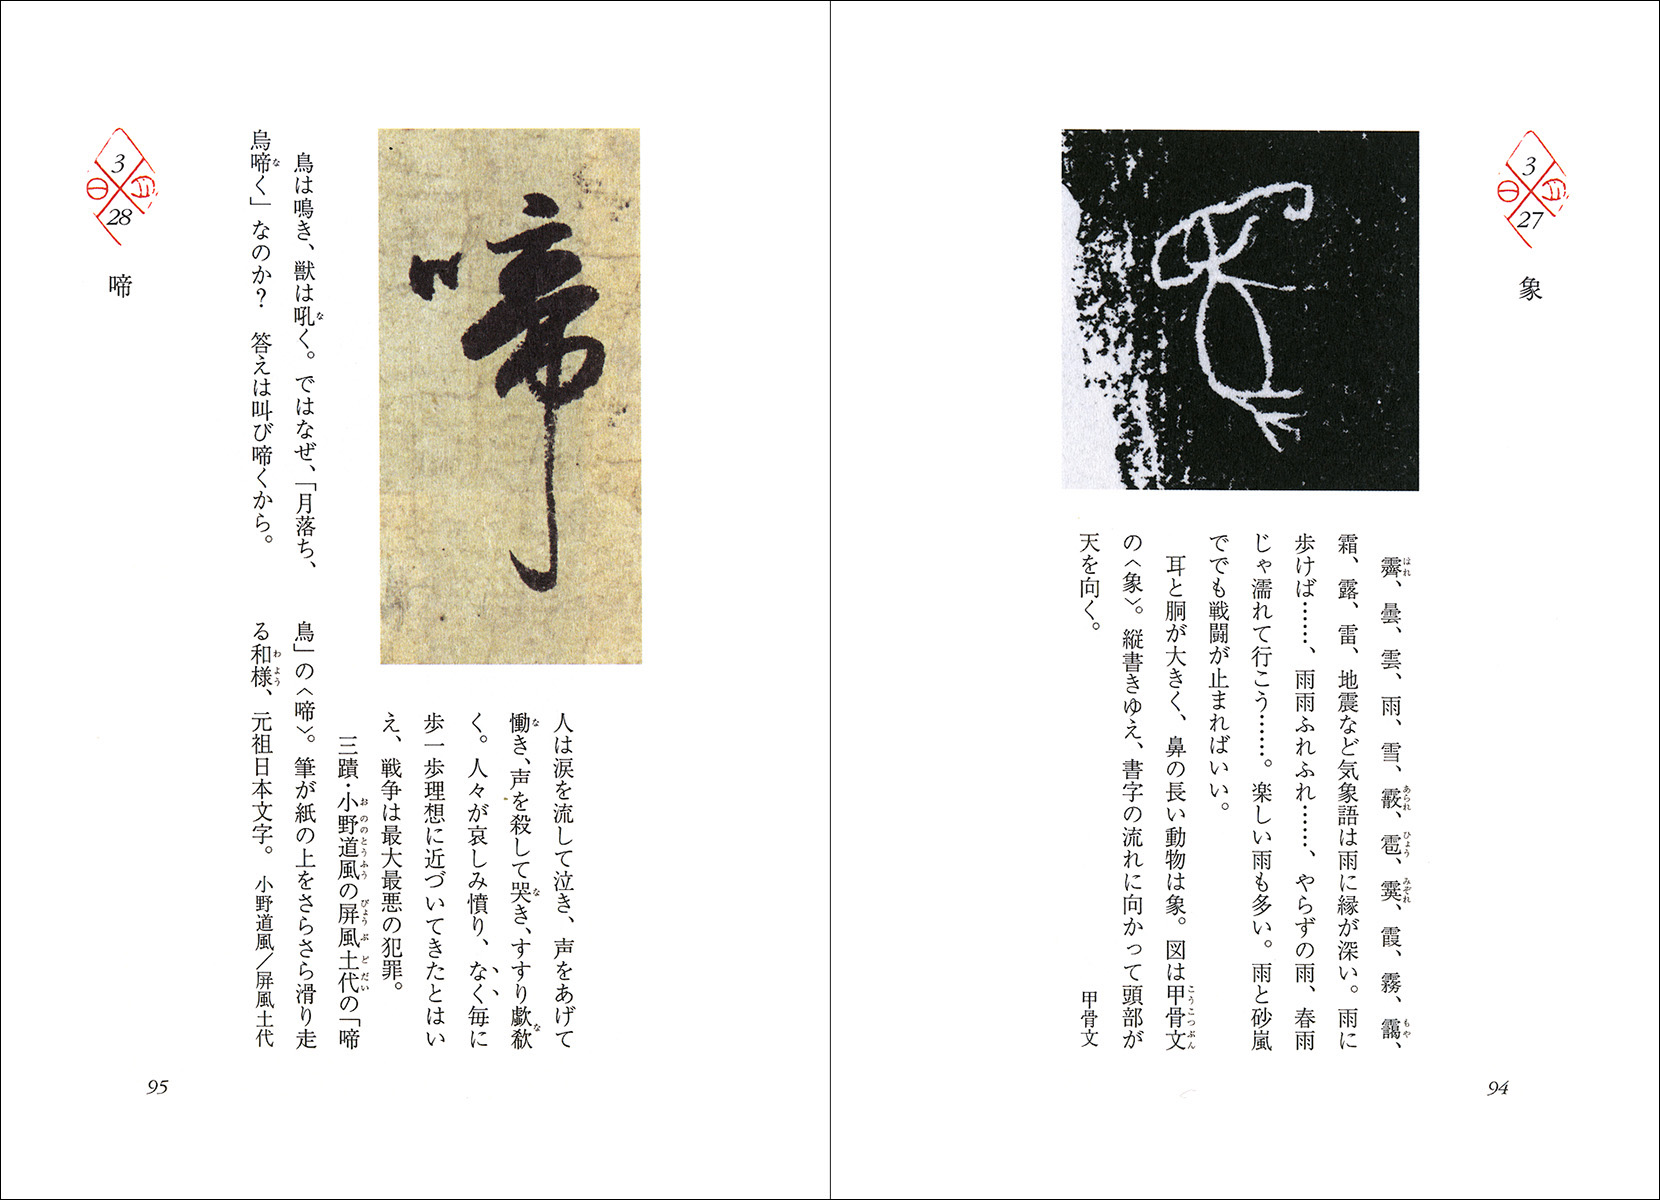 3
月
27
日
象
霽、曇、雲、雨、雪、霰、雹、霙、霞、霧、靄、
霜、露、雷、地震など気象語は雨に縁が深い。雨に
歩けば……、雨雨ふれふれ……、やらずの雨、春雨
じゃ濡れて行こう……。楽しい雨も多い。雨と砂嵐
ででも戦闘が止まればいい。
耳と胴が大きく、鼻の長い動物は象。図は甲骨文
の〈象〉。縦書きゆえ、書字の流れに向かって頭部が
天を向く。
甲骨文
94
3
月
28
日
啼
啼
鳥は鳴き、獣は吼く。ではなぜ、「月落ち、
烏啼く」なのか? 答えは叫び啼くから。
人は涙を流して泣き、声をあげて
慟き、声を殺して哭き、すすり歔欷
く。人々が哀しみ憤り、なく毎に
歩一歩理想に近づいてきたとはい
え、戦争は最大最悪の犯罪。
三蹟・小野道風の屏風土代の「啼
鳥」の〈啼〉。筆が紙の上をさらさら滑り走
る和様、元祖日本文字。
小野道風／屏風土代
95